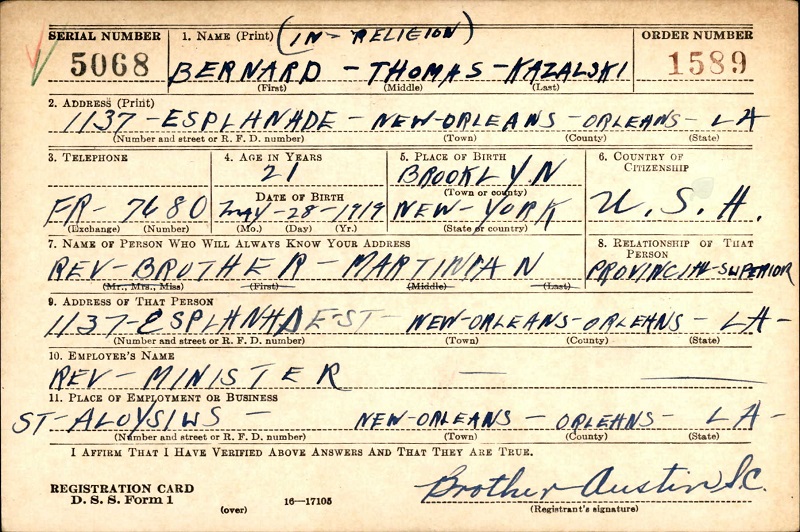 SERIAL NUMBER 1. NAME (Print) (IN-RELIGION) ORDER NUMBER
5068 BERNARD - THOMAS - KAZALSKI 1589
(First) (Middle) (Last)
2. ADDRESS (Print)
1137 - ESPLANADE - NEW-ORLEANS - ORLEANS - LA
(Number and street or R. F. D. number) (Town) (County) (State)
3. TELEPHONE 4. AGE IN YEARS 5. PLACE OF BIRTH 6. COUNTRY OF CITIZENSHIP
21 BROOKLYN
DATE OF BIRTH (Town or county)
FR - 7680 MAY - 28 - 1919 NEW - YORK U. S. A.
(Exchange) (Number) (Mo.) (Day) (Yr.) (State or country)
7. NAME OF PERSON WHO WILL ALWAYS KNOW YOUR ADDRESS 8. RELATIONSHIP OF THAT PERSON
REV - BROTHER - MARTINIAN PROVINCIAL-SUPERIOR
(Mr., Mrs., Miss) (First) (Middle) (Last)
9. ADDRESS OF THAT PERSON
1137 - ESPLANADE-ST - NEW-ORLEANS-ORLEANS - LA -
(Number and street or R. F. D. number) (Town) (County) (State)
10. EMPLOYER'S NAME
REV - MINISTER
11. PLACE OF EMPLOYMENT OR BUSINESS
ST-ALOYSIUS - NEW-ORLEANS - ORLEANS - LA -
(Number and street or R. F. D. number) (Town) (County) (State)
I AFFIRM THAT I HAVE VERIFIED ABOVE ANSWERS AND THAT THEY ARE TRUE.
REGISTRATION CARD Brother Austin S.C.
D. S. S. Form 1 (over) 16—17105 (Registrant's signature)